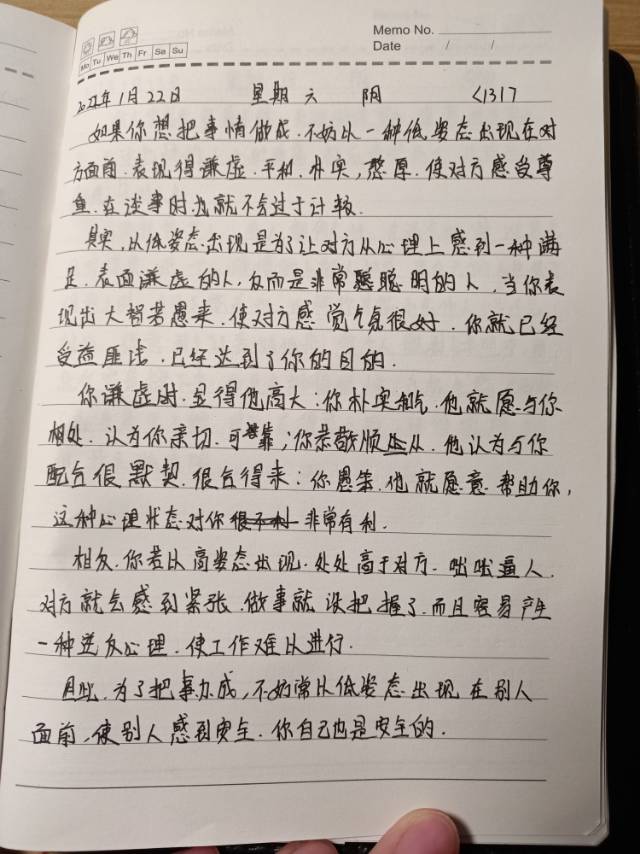 Memo No.
Date / /
Mo Tu We Th Fr Sa Su
2022年1月22日 星期六 阴 <1317
如果你想把事情做成.不妨以一种低姿态出现在对
方面前.表现得谦虚.平和.朴实,憨厚.使对方感受尊
重.在谈事时也就不会过于计较.
其实,从低姿态出现是为了让对方从心理上感到一种满
足.表面谦虚的人,反而是非常聪明的人,当你表
现出大智若愚来.使对方感觉气氛很好.你就已经
受益匪浅.已经达到了你的目的.
你谦虚时.显得他高大;你朴实和气.他就愿与你
相处.认为你亲切.可靠;你恭敬顺从.他认为与你
配合很默契.很合得来;你愚笨.他就愿意帮助你,
这种心理状态对你很不利非常有利.
相反.你若以高姿态出现.处处高于对方.咄咄逼人.
对方就会感到紧张.做事就没把握了.而且容易产生
一种逆反心理.使工作难以进行.
因此.为了把事办成,不妨常以低姿态出现在别人
面前,使别人感到安全.你自己也是安全的.